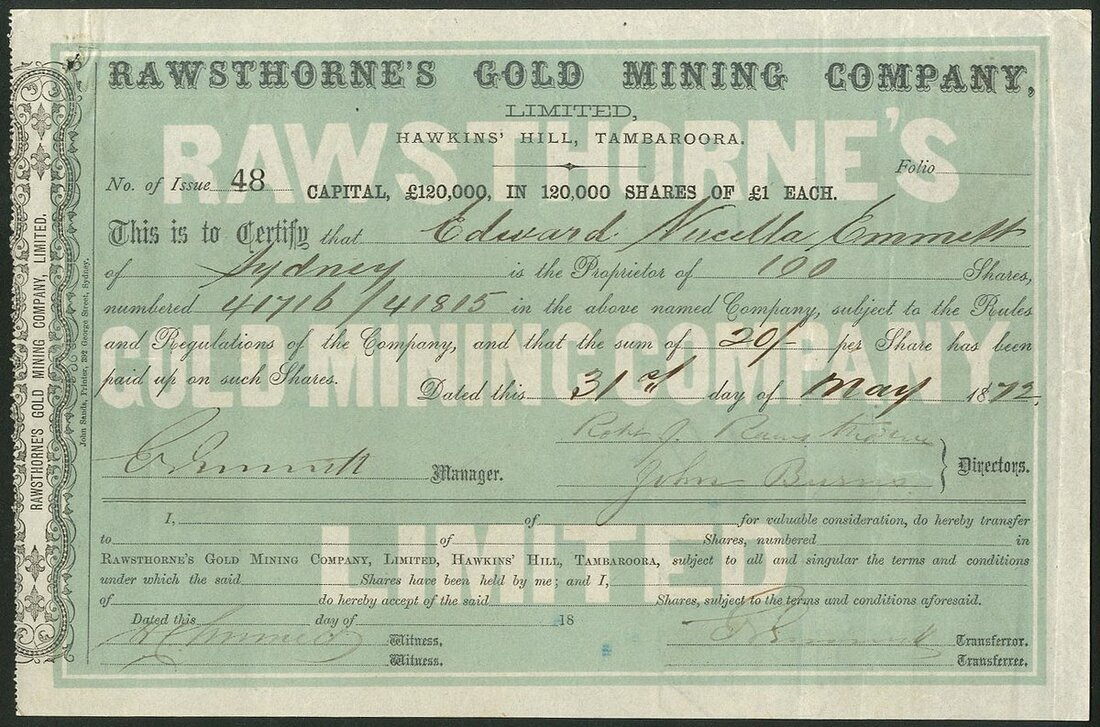 RAWSTHORNE'S GOLD MINING COMPANY,
LIMITED,
HAWKINS' HILL, TAMBAROORA.
Folio
No. of Issue 48 CAPITAL, £120,000, IN 120,000 SHARES OF £1 EACH.
This is to Certify that Edward Nucella Emmett
of Sydney is the Proprietor of 100 Shares,
numbered 41716/41815 in the above named Company, subject to the Rules
and Regulations of the Company, and that the sum of 20/- per Share has been
paid up on such Shares. Dated this 31st day of May 1872.
Robt J. Rawsthorne
Emmett Manager. John Burns Directors.
I, of for valuable consideration, do hereby transfer
to of Shares, numbered in
RAWSTHORNE'S GOLD MINING COMPANY, LIMITED, HAWKINS' HILL, TAMBAROORA, subject to all and singular the terms and conditions
under which the said Shares have been held by me; and I,
of do hereby accept of the said Shares, subject to the terms and conditions aforesaid.
Dated this day of 18
Witness, Transferror.
Witness. Transferree.
RAWSTHORNE'S
GOLD MINING COMPANY
LIMITED
RAWSTHORNE'S GOLD MINING COMPANY, LIMITED.
John Sands, Printer, 392 George Street, Sydney.